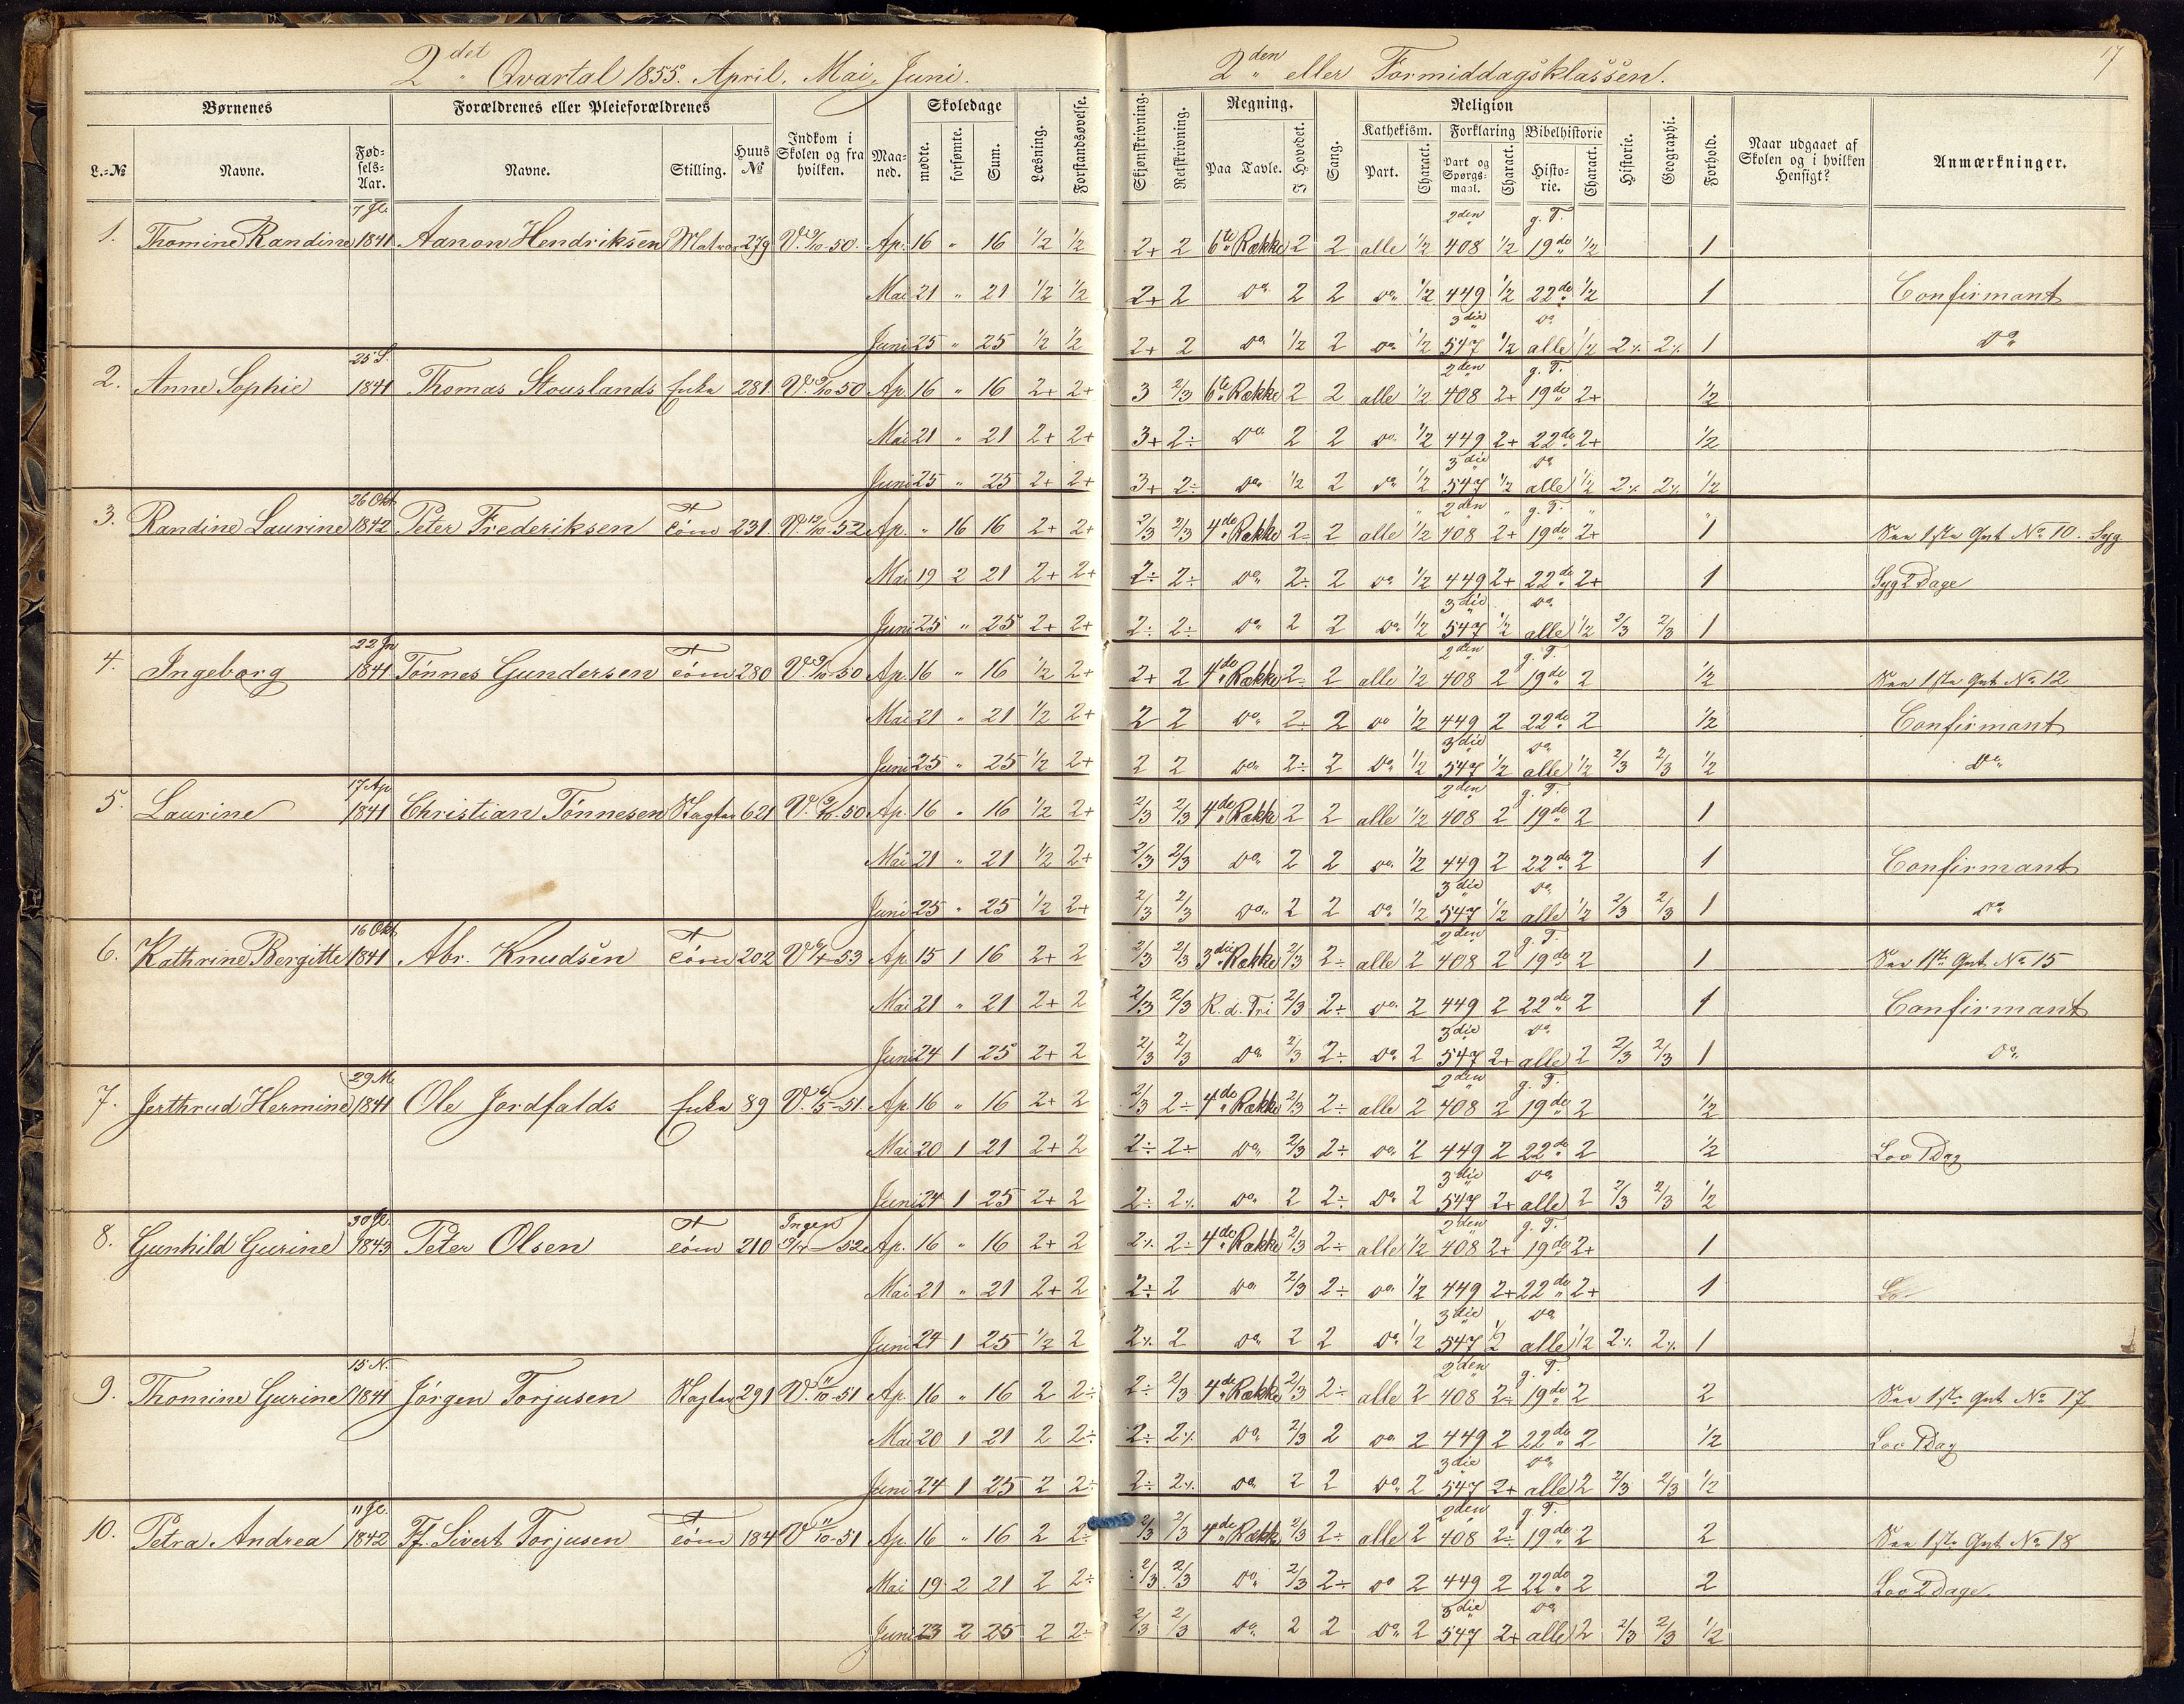 2det Qvartal 1855. April, Mai, Juni.
2den eller Formiddagsklassen.
17
Børnenes
Forældrenes eller Pleieforældrenes
Indkom i Skolen og fra hvilken.
Maaned.
Skoledage
Læsning.
Forstandsøvelse.
Skjønskrivning.
Retskrivning.
Regning.
Sang.
Religion
Historie.
Geographi.
Forhold.
Naar udgaaet af Skolen og i hvilken Hensigt?
Anmærkninger.
L.-No Navne. Fødsels-Aar. Navne. Stilling. Huus No mødte. forsømte. Sum.
Paa Tavle. I Hovedet. Kathekism. Part. Charact. Forklaring Part og Spørgsmaal. Charact. Bibelhistorie Historie. Charact.
7 Jl. 2den g. T.
1. Thomine Randine 1841 Aanon Hendriksen Matros 279 V. 9/10-50. Ap. 16 " 16 1/2 1/2 2+ 2 6te Række 2 2 alle 1/2 408 1/2 19de 1/2 1
Mai 21 " 21 1/2 1/2 2+ 2 do 2 2 do 1/2 449 1/2 22de 1/2 1 Confirmant
3die do
Juni 25 " 25 1/2 1/2 2+ 2 do 1/2 2 do 1/2 547 1/2 alle 1/2 2% 2% 1 do
25 S. 2den g. T.
2. Anne Sophie 1841 Thomas Stouslands Enke 281 V. 9/10-50 Ap. 16 " 16 2+ 2+ 3 2/3 6te Række 2 2 alle 1/2 408 2+ 19de 2+ 1/2
Mai 21 " 21 2+ 2+ 3+ 2÷ do 2 2 do 1/2 449 2+ 22de 2+ 1/2
3die do
Juni 25 " 25 2+ 2+ 3+ 2÷ do 1/2 2 do 1/2 547 1/2 alle 1/2 2% 2% 1/2
26 Okt 2den g. T.
3. Randine Laurine 1842 Peter Frederiksen Tøm 231. V. 12/10-52 Ap. " 16 16 2+ 2+ 2/3 2/3 4de Række 2÷ 2 alle 1/2 408 2+ 19de 2+ 1 See 1ste Qvt No 10. Syg
Mai 19 2 21 2+ 2+ 2÷ 2÷ do 2÷ 2 do 1/2 449 2+ 22de 2+ 1 Syg 2 Dage
3die do
Juni 25 " 25 2+ 2+ 2÷ 2÷ do 2 2 do 1/2 547 1/2 alle 1/2 2/3 2/3 1
22 Jn 2den g. T.
4. Ingeborg 1841 Tønnes Gundersen Tøm 280 V. 9/10-50 Ap. 16 " 16 1/2 2+ 2+ 2 4de Række 2÷ 2 alle 1/2 408 2 19de 2 1/2 See 1ste Qvt No 12
Mai 21 " 21 1/2 2+ 2 2 do 2÷ 2 do 1/2 449 2 22de 2 1/2 Confirmant
3die do
Juni 25 " 25 1/2 2+ 2 2 do 2÷ 2 do 1/2 547 1/2 alle 1/2 2/3 2/3 1/2 do
17 Ap 2den g. T.
5. Laurine 1841 Christian Tønnesen 621 V. 9/10-50 Ap. 16 " 16 1/2 2+ 2/3 2/3 4de Række 2 2 alle 1/2 408 2 19de 2 1
Mai 21 " 21 1/2 2+ 2/3 2/3 do 2 2 do 1/2 449 2 22de 2 1 Confirmant
3die do
Juni 25 " 25 1/2 2+ 2/3 2/3 do 2 2 do 1/2 547 1/2 alle 1/2 2/3 2/3 1 do
16 Okt 2den g. T.
6. Kathrine Bergitte 1841 Abr. Knudsen Tøm 202 V 6/4-53 Ap 15 1 16 2+ 2 2/3 2/3 3die Række 2/3 2÷ alle 2 408 2 19de 2 1 See 1ste Qvt No 15
Mai 21 " 21 2+ 2 2/3 2/3 R. d. Tri 2/3 2÷ do 2 449 2 22de 2 1 Confirmant
3die do
Juni 24 1 25 2+ 2 2/3 2/3 do 2/3 2÷ do 2 547 2+ alle 2 2/3 2/3 1 do
29 M. 2den g. T.
7. Jerthrud Hermine 1841 Ole Jordfalds Enke 89 V. 6/5-51. Ap. 16 " 16 2+ 2 2/3 2÷ 4de Række 2/3 2÷ alle 2 408 2 19de 2 1/2
Mai 20 1 21 2+ 2 2÷ 2÷ do 2/3 2÷ do 2 449 2 22de 2 1/2 Lov 1 Dag
3die do
Juni 24 1 25 2+ 2 2÷ 2% do 2 2÷ do 2 547 2+ alle 2 2/3 2/3 1/2
30 Jl. Ingen 2den g. T.
8. Gunhild Gurine 1843 Peter Olsen Tøm 210 -52 Ap. 16 " 16 2+ 2 2% 2÷ 4de Række 2/3 2÷ alle 1/2 408 2+ 19de 2+ 1
Mai 21 " 21 2+ 2 2÷ 2 do 2/3 2÷ do 1/2 449 2+ 22de 2+ 1 Lo
3die do
Juni 24 1 25 1/2 2 2% 2 do 2 2 do 1/2 547 1/2 alle 1/2 2% 2% 1
15 N. 2den g. T.
9. Thomine Gurine 1841 Jörgen Torjusen 291 V. 11/10-51 Ap. 16 " 16 2 2÷ 2÷ 2/3 4de Række 2/3 2÷ alle 2 408 2÷ 19de 2 2 See 1ste Qvt No 17
Mai 20 1 21 2 2÷ 2÷ 2% do 2/3 2 do 2 449 2 22de 2 1/2 Lov 1 Dag
3die do
Juni 24 1 25 2 2÷ 2÷ 2% do 2 2 do 2 547 2+ alle 2 2/3 2/3 1/2
11 Jl. 2den g. T.
10. Petra Andrea 1842 Ff. Sivert Torjusen Tøm 184 V 11/10-51 Ap. 16 " 16 2 2÷ 2/3 2/3 4de Række 2/3 2÷ alle 2 408 2÷ 19de 2 2 See 1ste Qvt No 18
Mai 19 2 21 2 2÷ 2/3 2/3 do 2/3 2÷ do 2 449 2 22de 2 2 Lov 2 Dage
3die do
Juni 23 2 25 2 2÷ 2/3 2/3 do 2 2 do 2 547 2+ alle 2 2/3 2/3 1/2